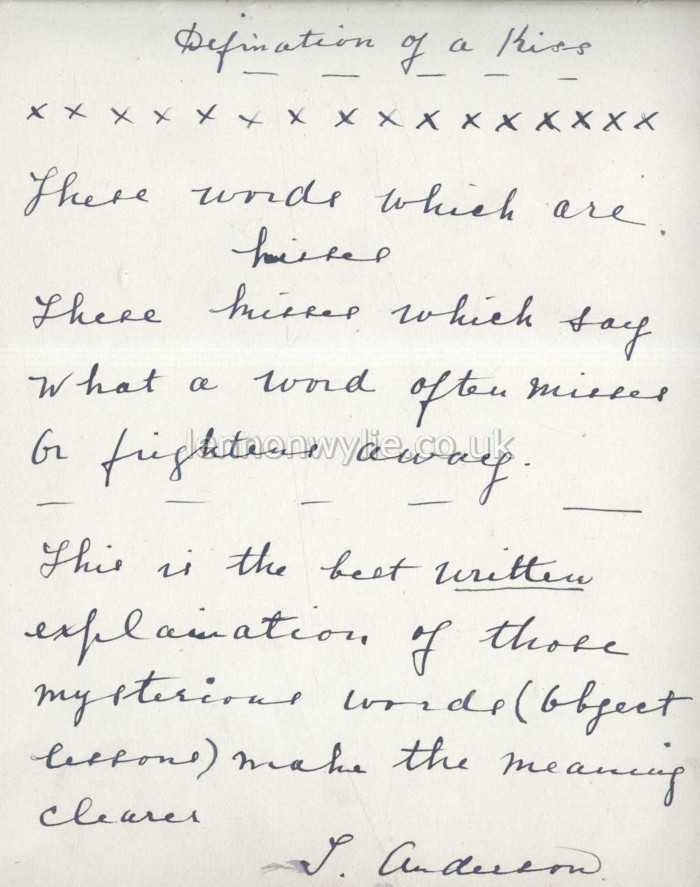 Defination of a Kiss
x x x x x x x x x x x x x x x x
These words which are
kisses
These kisses which say
What a word often misses
Or frightens away.
lennonwylie.co.uk
This is the best written
explaination of those
mysterious words (object
lessons) make the meaning
clearer
J. Anderson